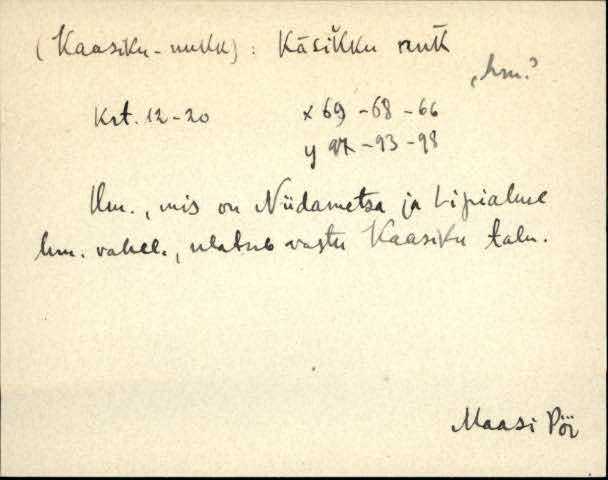 (Kaasiku-nukk): Käsikku nuk̄
„hm."
Krt. 12-20 x 69 -68 -66
y 97 -93 -98
Hm., mis on Niidametsa ja Lipialuse
hm. vahel, ulatub vastu Kaasiku talu.
Maasi Pöi